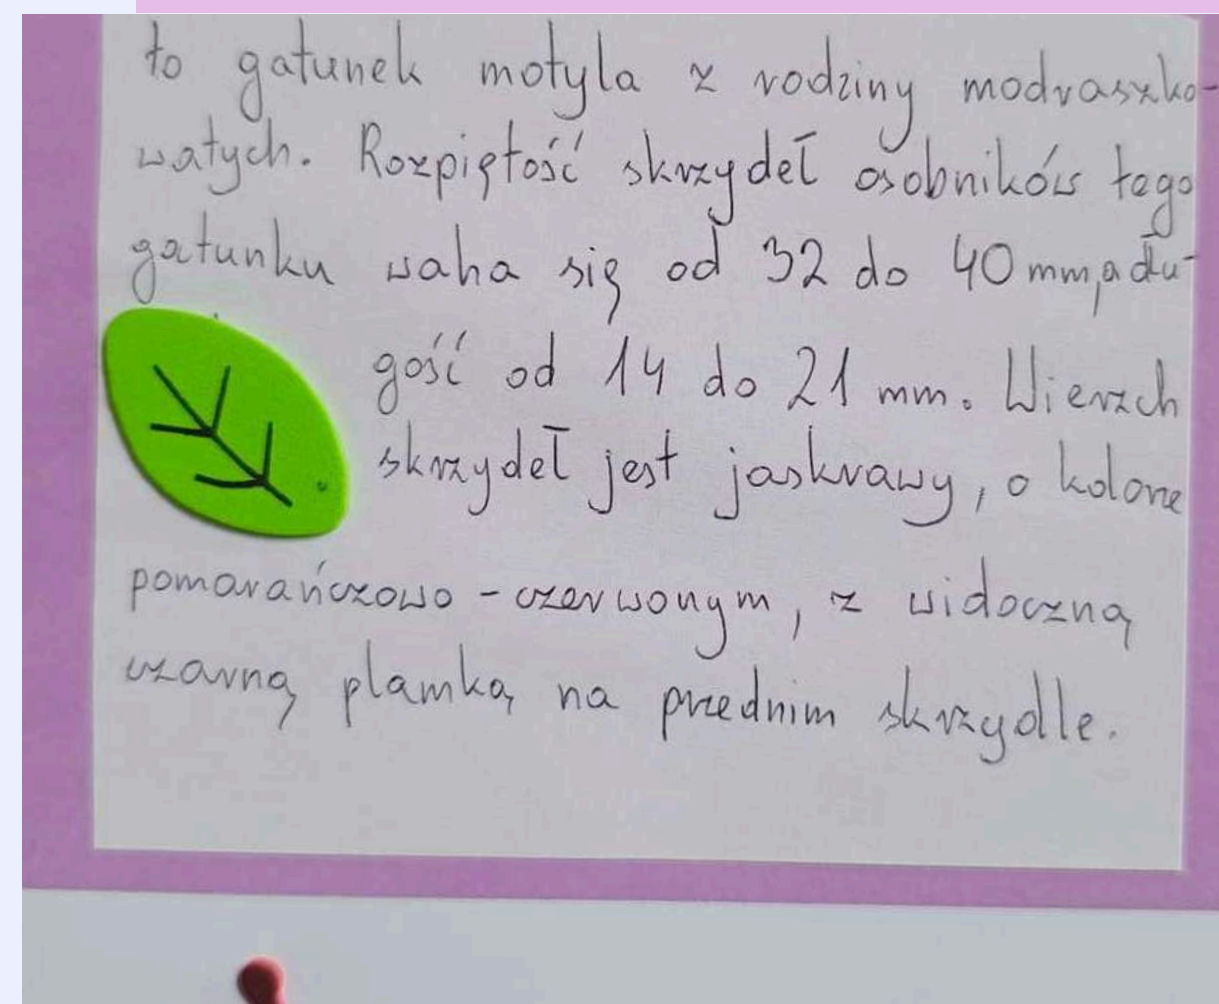 to gatunek motyla z rodziny modraszko-
watych. Rozpiętość skrzydeł osobników tego
gatunku waha się od 32 do 40 mm, a dłu-
gość od 14 do 21 mm. Wierzch
skrzydeł jest jaskrawy, o kolorze
pomarańczowo-czerwonym, z widoczną
czarną plamką na przednim skrzydle.